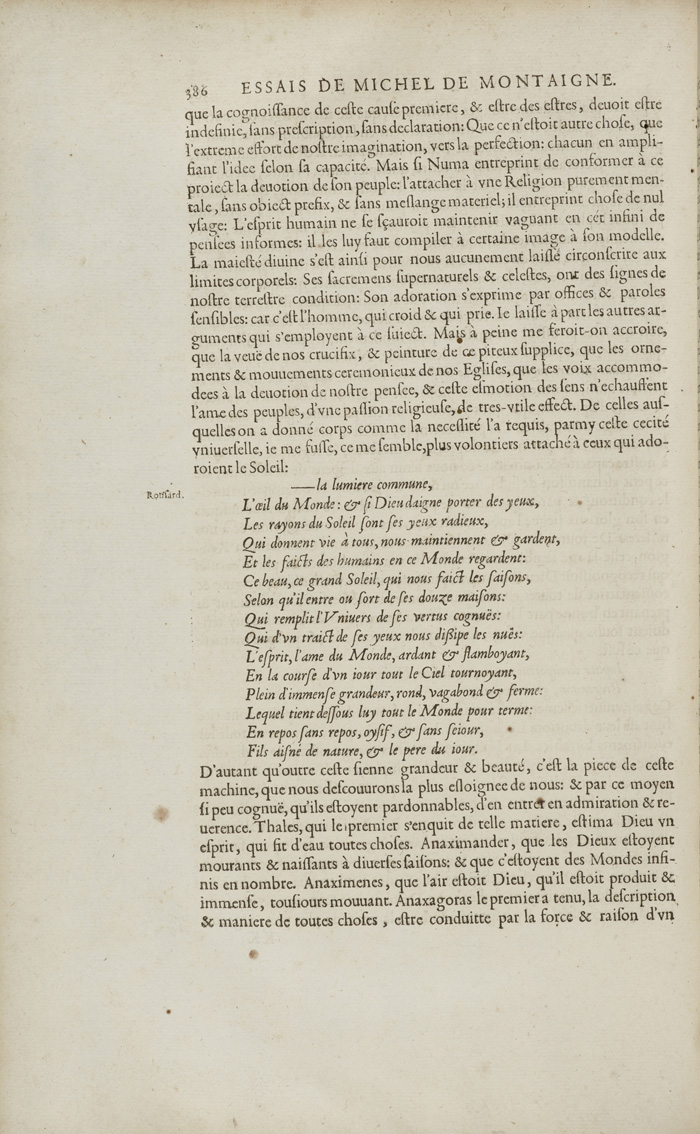 386 ESSAIS DE MICHEL DE MONTAIGNE.
que la cognoiſſance de ceſte cauſe premiere, & eſtre des eſtres, deuoit eſtre
indefinie, ſans preſcription, ſans declaration: Que ce n'eſtoit autre choſe, que
l'extreme effort de noſtre imagination, vers la perfection: chacun en ampli-
fiant l'idee ſelon ſa capacité. Mais ſi Numa entreprint de conformer à ce
proiect la deuotion de ſon peuple: l'attacher à vne Religion purement men-
tale, ſans obiect prefix, & ſans meſlange materiel; il entreprint choſe de nul
vſage: L'eſprit humain ne ſe ſçauroit maintenir vaguant en cét infini de
penſees informes: il les luy faut compiler à certaine image à ſon modelle.
La maieſté diuine s'eſt ainſi pour nous aucunement laiſſé circonſcrite aux
limites corporels: Ses ſacremens ſupernaturels & celeſtes, ont des ſignes de
noſtre terreſtre condition: Son adoration s'exprime par offices & paroles
ſenſibles: car c'eſt l'homme, qui croid & qui prie. Ie laiſſe à part les autres ar-
guments qui s'employent à ce ſuiect. Mais à peine me feroit-on accroire,
que la veuë de nos crucifix, & peinture de ce piteux ſupplice, que les orne-
ments & mouuements ceremonieux de nos Egliſes, que les voix accommo-
dees à la deuotion de noſtre penſee, & ceſte eſmotion des ſens n'echauffent
l'ame des peuples, d'vne paſſion religieuſe, de tres-vtile effect. De celles auſ-
quelles on a donné corps comme la neceſſité l'a requis, parmy ceſte cecité
vniuerſelle, ie me fuſſe, ce me ſemble, plus volontiers attaché à ceux qui ado-
roient le Soleil:
——la lumiere commune,
Ronſſard.
L'œil du Monde: & ſi Dieu daigne porter des yeux,
Les rayons du Soleil ſont ſes yeux radieux,
Qui donnent vie à tous, nous maintiennent & gardent,
Et les faicts des humains en ce Monde regardent:
Ce beau, ce grand Soleil, qui nous faict les ſaiſons,
Selon qu'il entre ou ſort de ſes douze maiſons:
Qui remplit l'Vniuers de ſes vertus cognuës:
Qui d'vn traict de ſes yeux nous diſſipe les nuës:
L'eſprit, l'ame du Monde, ardant & flamboyant,
En la courſe d'vn iour tout le Ciel tournoyant,
Plein d'immenſe grandeur, rond, vagabond & ferme:
Lequel tient deſſous luy tout le Monde pour terme:
En repos ſans repos, oyſif, & ſans ſeiour,
Fils aiſné de nature, & le pere du iour.
D'autant qu'outre ceſte ſienne grandeur & beauté, c'eſt la piece de ceſte
machine, que nous deſcouurons la plus eſloignee de nous: & par ce moyen
ſi peu cognuë, qu'ils eſtoyent pardonnables, d'en entrer en admiration & re-
uerence. Thales, qui le premier s'enquit de telle matiere, eſtima Dieu vn
eſprit, qui fit d'eau toutes choſes. Anaximander, que les Dieux eſtoyent
mourants & naiſſants à diuerſes ſaiſons: & que c'eſtoyent des Mondes infi-
nis en nombre. Anaximenes, que l'air eſtoit Dieu, qu'il eſtoit produit &
immenſe, touſiours mouuant. Anaxagoras le premier a tenu, la deſcription
& maniere de toutes choſes, eſtre conduitte par la force & raiſon d'vn